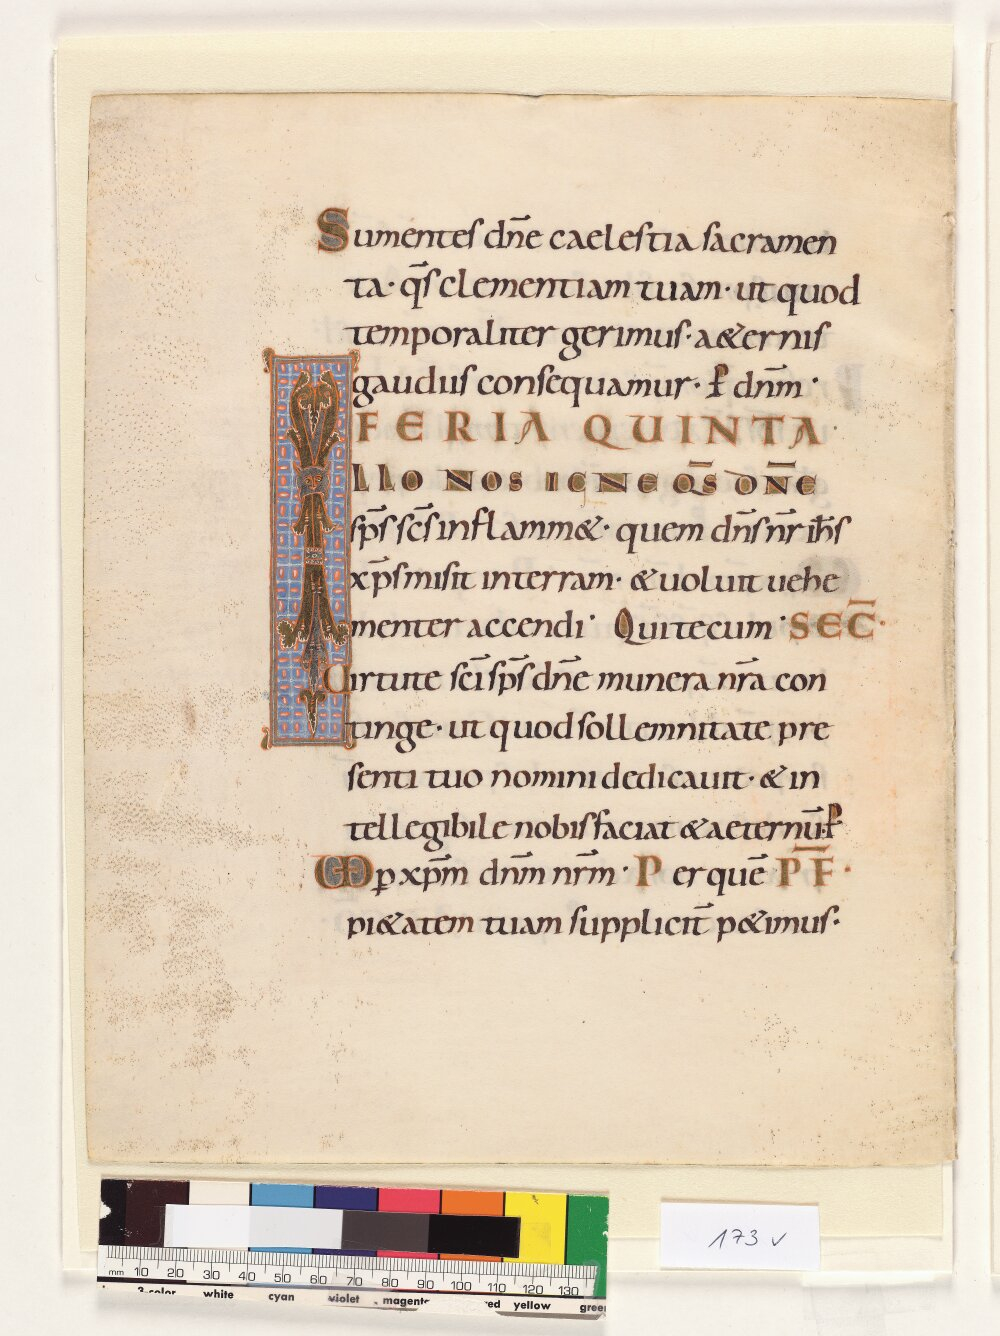 Sumentes dn̄e caelestia sacramen
ta· qs̄ clementiam tuam· ut quod
temporaliter gerimus· a&ernis
gaudiis consequamur· ꝑ dn̄m·
FERIA QUINTA
Illo nos igne qs̄ dn̄e
sp̄s sc̄s inflamm&· quem dn̄s nr̄ ih̄s
xp̄s misit in terram· & uoluit uehe
menter accendi· Qui tecum· SEC̄·
Uirtute sc̄i sp̄s dn̄e munera nr̄a con
tinge· ut quod sollemnitate pre
senti tuo nomini dedicauit· & in
tellegibile nobis faciat & aeternū· ꝑ
ꝑ xp̄m dn̄m nr̄m· Per quē PF̄·
pi&atem tuam suppliciт̄ p&imus·
173 v
mm 10 20 30 40 50 60 70 80 90 100 110 120 130
3-color white cyan violet magenta red yellow green